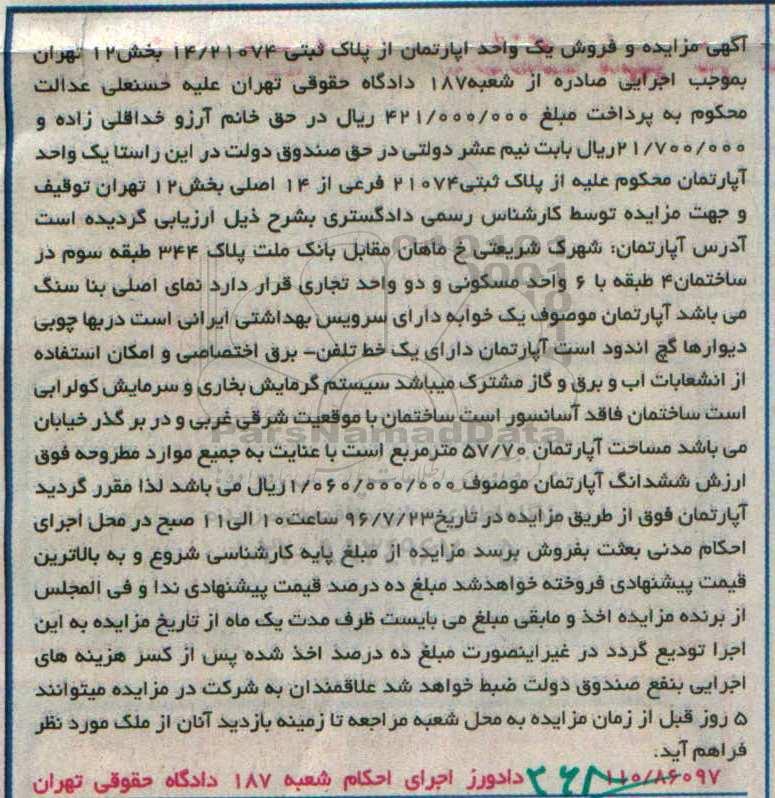 آگهی مزایده و فروش یک واحد اپارتمان از پلاک ثبتی ۱۴/۲۱۰۷۴ بخش۱۲ تهران
بموجب اجرایی صادره از شعبه۱۸۷ دادگاه حقوقی تهران علیه حسنعلی عدالت
محکوم به پرداخت مبلغ ۴۲۱/۰۰۰/۰۰۰ ریال در حق خانم آرزو خداقلی زاده و
۲۱/۷۰۰/۰۰۰ریال بابت نیم عشر دولتی در حق صندوق دولت در این راستا یک واحد
آپارتمان محکوم علیه از پلاک ثبتی۲۱۰۷۴ فرعی از ۱۴ اصلی بخش۱۲ تهران توقیف
و جهت مزایده توسط کارشناس رسمی دادگستری بشرح ذیل ارزیابی گردیده است
آدرس آپارتمان: شهرک شریعتی خ ماهان مقابل بانک ملت پلاک ۳۴۴ طبقه سوم در
ساختمان۴ طبقه با ۶ واحد مسکونی و دو واحد تجاری قرار دارد نمای اصلی بنا سنگ
می باشد آپارتمان موصوف یک خوابه دارای سرویس بهداشتی ایرانی است دربها چوبی
دیوارها گچ اندود است آپارتمان دارای یک خط تلفن- برق اختصاصی و امکان استفاده
از انشعابات اب و برق و گاز مشترک میباشد سیستم گرمایش بخاری و سرمایش کولرابی
است ساختمان فاقد آسانسور است ساختمان با موقعیت شرقی غربی و در بر گذر خیابان
می باشد مساحت آپارتمان ۵۷/۷۰ مترمربع است با عنایت به جمیع موارد مطروحه فوق
ارزش ششدانگ آپارتمان موصوف ۱/۰۶۰/۰۰۰/۰۰۰ریال می باشد لذا مقرر گردید
آپارتمان فوق از طریق مزایده در تاریخ۹۶/۷/۲۳ ساعت۱۰ الی۱۱ صبح در محل اجرای
احکام مدنی بعثت بفروش برسد مزایده از مبلغ پایه کارشناسی شروع و به بالاترین
قیمت پیشنهادی فروخته خواهدشد مبلغ ده درصد قیمت پیشنهادی ندا و فی المجلس
از برنده مزایده اخذ و مابقی مبلغ می بایست ظرف مدت یک ماه از تاریخ مزایده به این
اجرا تودیع گردد در غیراینصورت مبلغ ده درصد اخذ شده پس از کسر هزینه های
اجرایی بنفع صندوق دولت ضبط خواهد شد علاقمندان به شرکت در مزایده میتوانند
۵ روز قبل از زمان مزایده به محل شعبه مراجعه تا زمینه بازدید آنان از ملک مورد نظر
فراهم آید.
۱۱۰/۸۶۰۹۷ دادورز اجرای احکام شعبه ۱۸۷ دادگاه حقوقی تهران
ParsNamadData